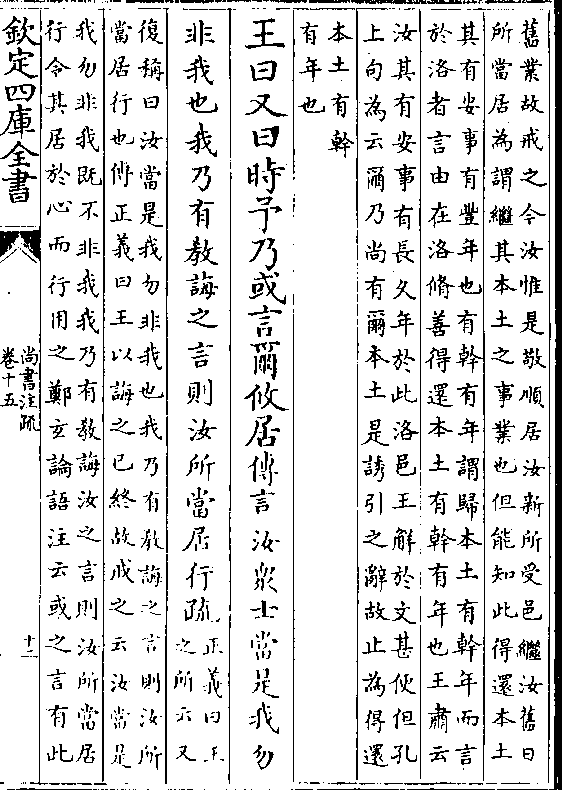 舊業故戒之今汝惟是敬順居汝新所受邑繼汝舊日
所當居為謂繼其本土之事業也但能知此得還本土
其有安事有豐年也有幹有年謂歸本土有幹年而言
於洛者言由在洛脩善得還本土有幹有年也王肅云
汝其有安事有長久年於此洛邑王解於文甚便但孔
上句為云爾乃尚有爾本土是誘引之辭故止為得還
本土有幹
有年也
王曰又曰時予乃或言爾攸居傳言汝衆士當是我勿
非我也我乃有教誨之言則汝所當居行疏正義曰王
之所云又
復稱曰汝當是我勿非我也我乃有教誨之言則汝所
當居行也傳正義曰王以誨之已終故戒之云汝當是
我勿非我既不非我我乃有教誨汝之言則汝所當居
行令其居於心而行用之鄭玄論語注云或之言有此
欽定四庫全書
尚書注疏
卷十五
十二